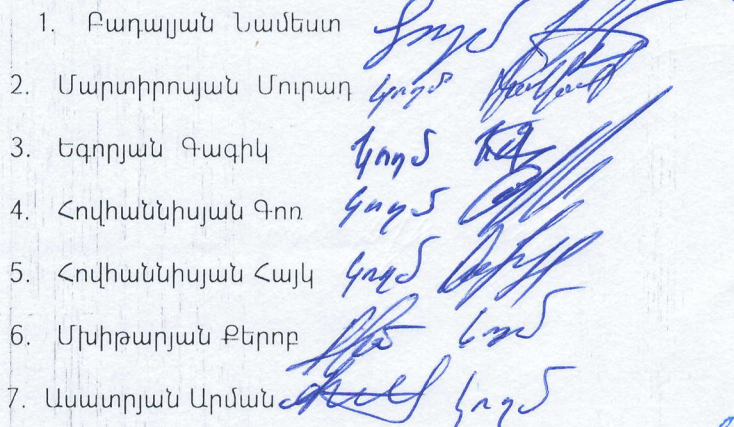 1. Բադալյան Նամեստ կողմ
2. Մարտիրոսյան Մուրադ կողմ
3. Եգորյան Գագիկ կողմ
4. Հովհաննիսյան Գոռ կողմ
5. Հովհաննիսյան Հայկ կողմ
6. Մխիթարյան Քերոբ կողմ
7. Ասատրյան Արման կողմ